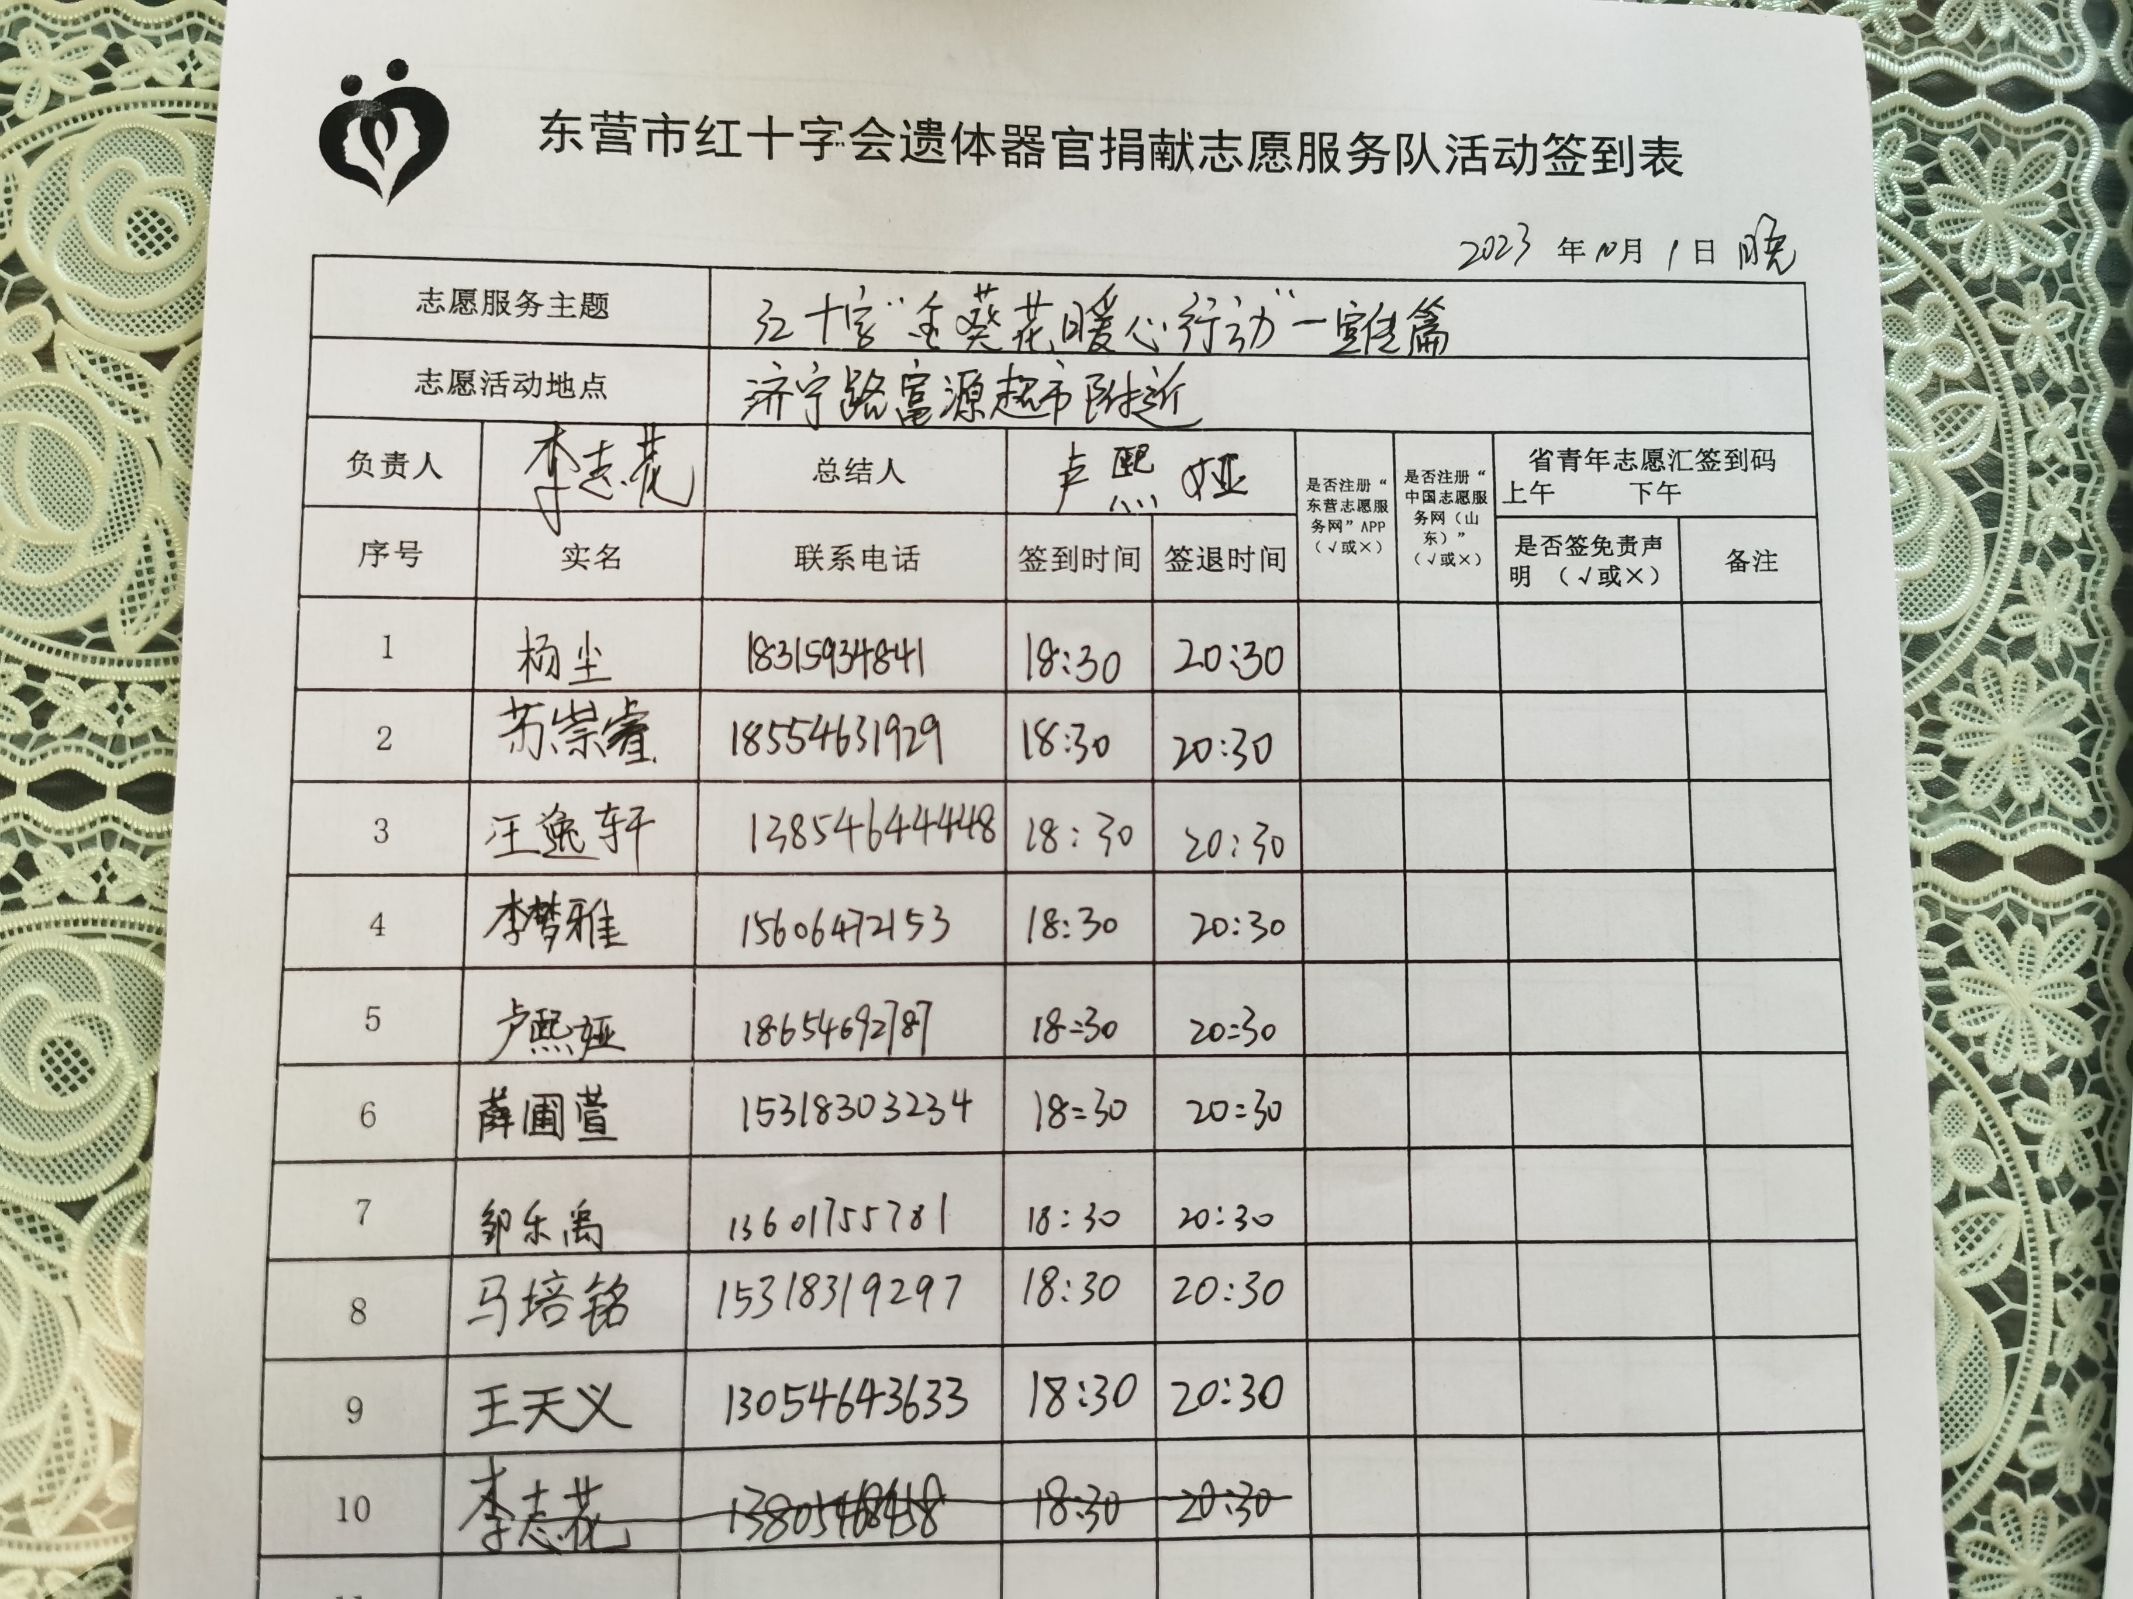 东营市红十字会遗体器官捐献志愿服务队活动签到表
2023 年 10 月 1 日 晚
志愿服务主题 红十字“金葵花暖心行动”一宣传篇
志愿活动地点 济宁路富源超市附近
负责人 李志花 总结人 卢熙娅 是否注册“东营志愿服务网”APP（√或×） 是否注册“中国志愿服务网（山东）”（√或×） 省青年志愿汇签到码 上午 下午
序号 实名 联系电话 签到时间 签退时间 是否签免责声明 （√或×） 备注
1 杨尘 18315934841 18:30 20:30
2 苏崇睿 18554631929 18:30 20:30
3 汪逸轩 13854644448 18:30 20:30
4 李梦雅 15606472153 18:30 20:30
5 卢熙娅 18654692787 18:30 20:30
6 薛圃萱 15318303234 18:30 20:30
7 邹乐禹 13601755781 18:30 20:30
8 马培铭 15318319297 18:30 20:30
9 王天义 13054643633 18:30 20:30
10 李志花 18:30 20:30